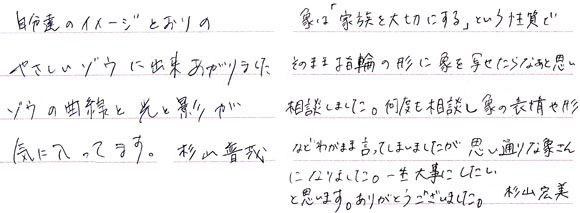 自分達のイメージどおりの
やさしいゾウに出来あがりました
ゾウの曲線と光と影が
気に入ってます。 杉山晋哉
象は「家族を大切にする」という性質で
そのまま指輪の形に象を写せたらなあと思い
相談しました。何度も相談し象の表情や形
などわがまま言ってしまいましたが 思い通りな象さん
になりました。一生大事にしたい
と思います。ありがとうございました。 杉山宏美